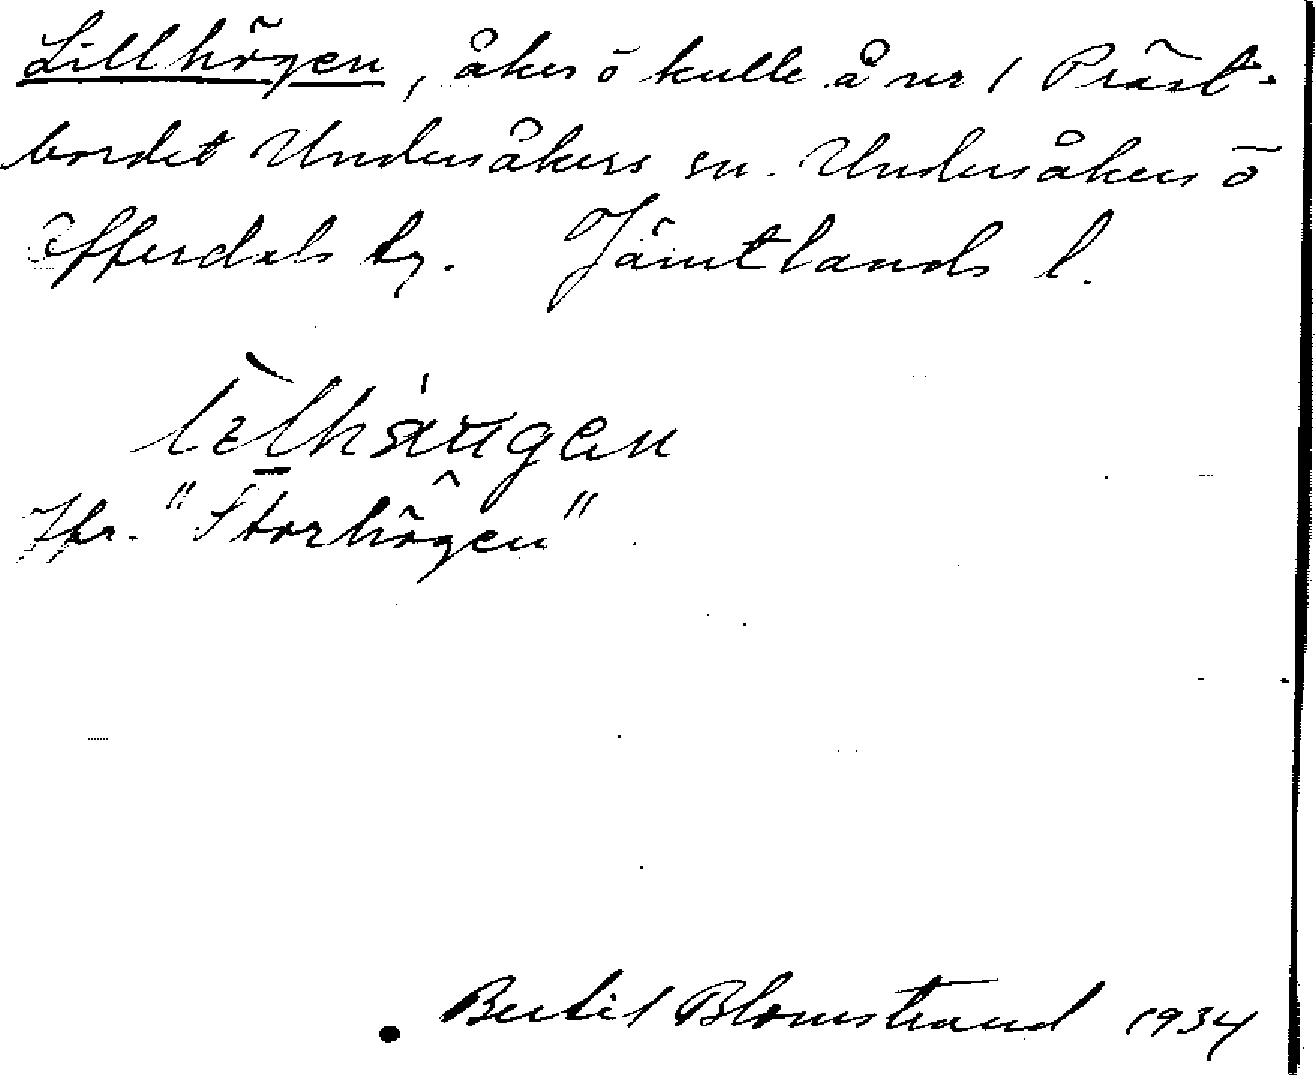 Lillhögen, åker ō kulle å nr 1 Präst-
bordet Undersåkers sn. Undersåkers ō
Offerdals tg. Jämtlands l.
Jfr. "Storhögen"
Bertil Blomstrand 1934